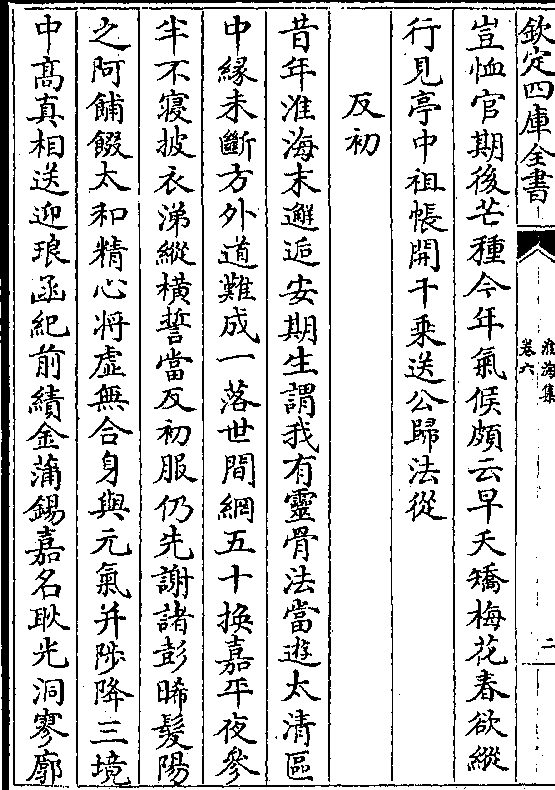 欽定四庫全書
淮海集
卷六
二
豈恤官期後芒種今年氣候頗云早天矯梅花春欲縱
行見亭中祖帳開千乘送公歸法從
反初
昔年淮海末邂逅安期生謂我有靈骨法當遊太清區
中緣未斷方外道難成一落世間網五十換嘉平夜參
半不寢披衣涕縱橫誓當反初服仍先謝諸彭晞髮陽
之阿餔餟太和精心將虛無合身與元氣并陟降三境
中高真相送迎琅函紀前績金蒲錫嘉名耿光洞寥廓